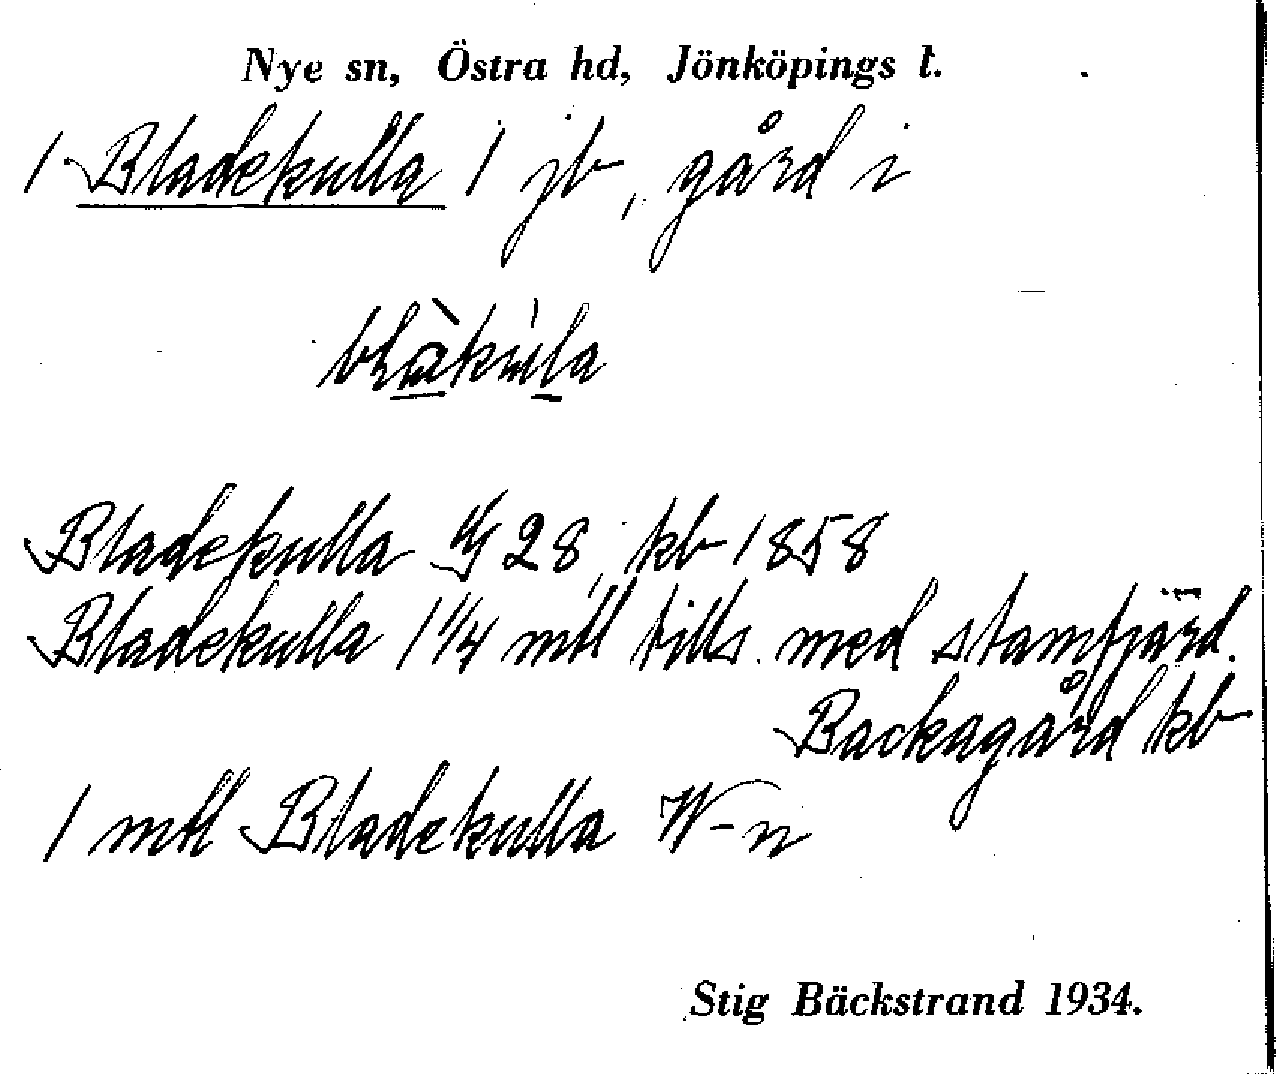 Nye sn, Östra hd, Jönköpings l.
1 Bladekulla 1 jb, gård i
Bladekulla 28, kb 1858
Bladekulla 1 1/4 mtl tills. med stamfjärd.
Backagård kb
1 mtl Bladekulla W-n
Stig Bäckstrand 1934.